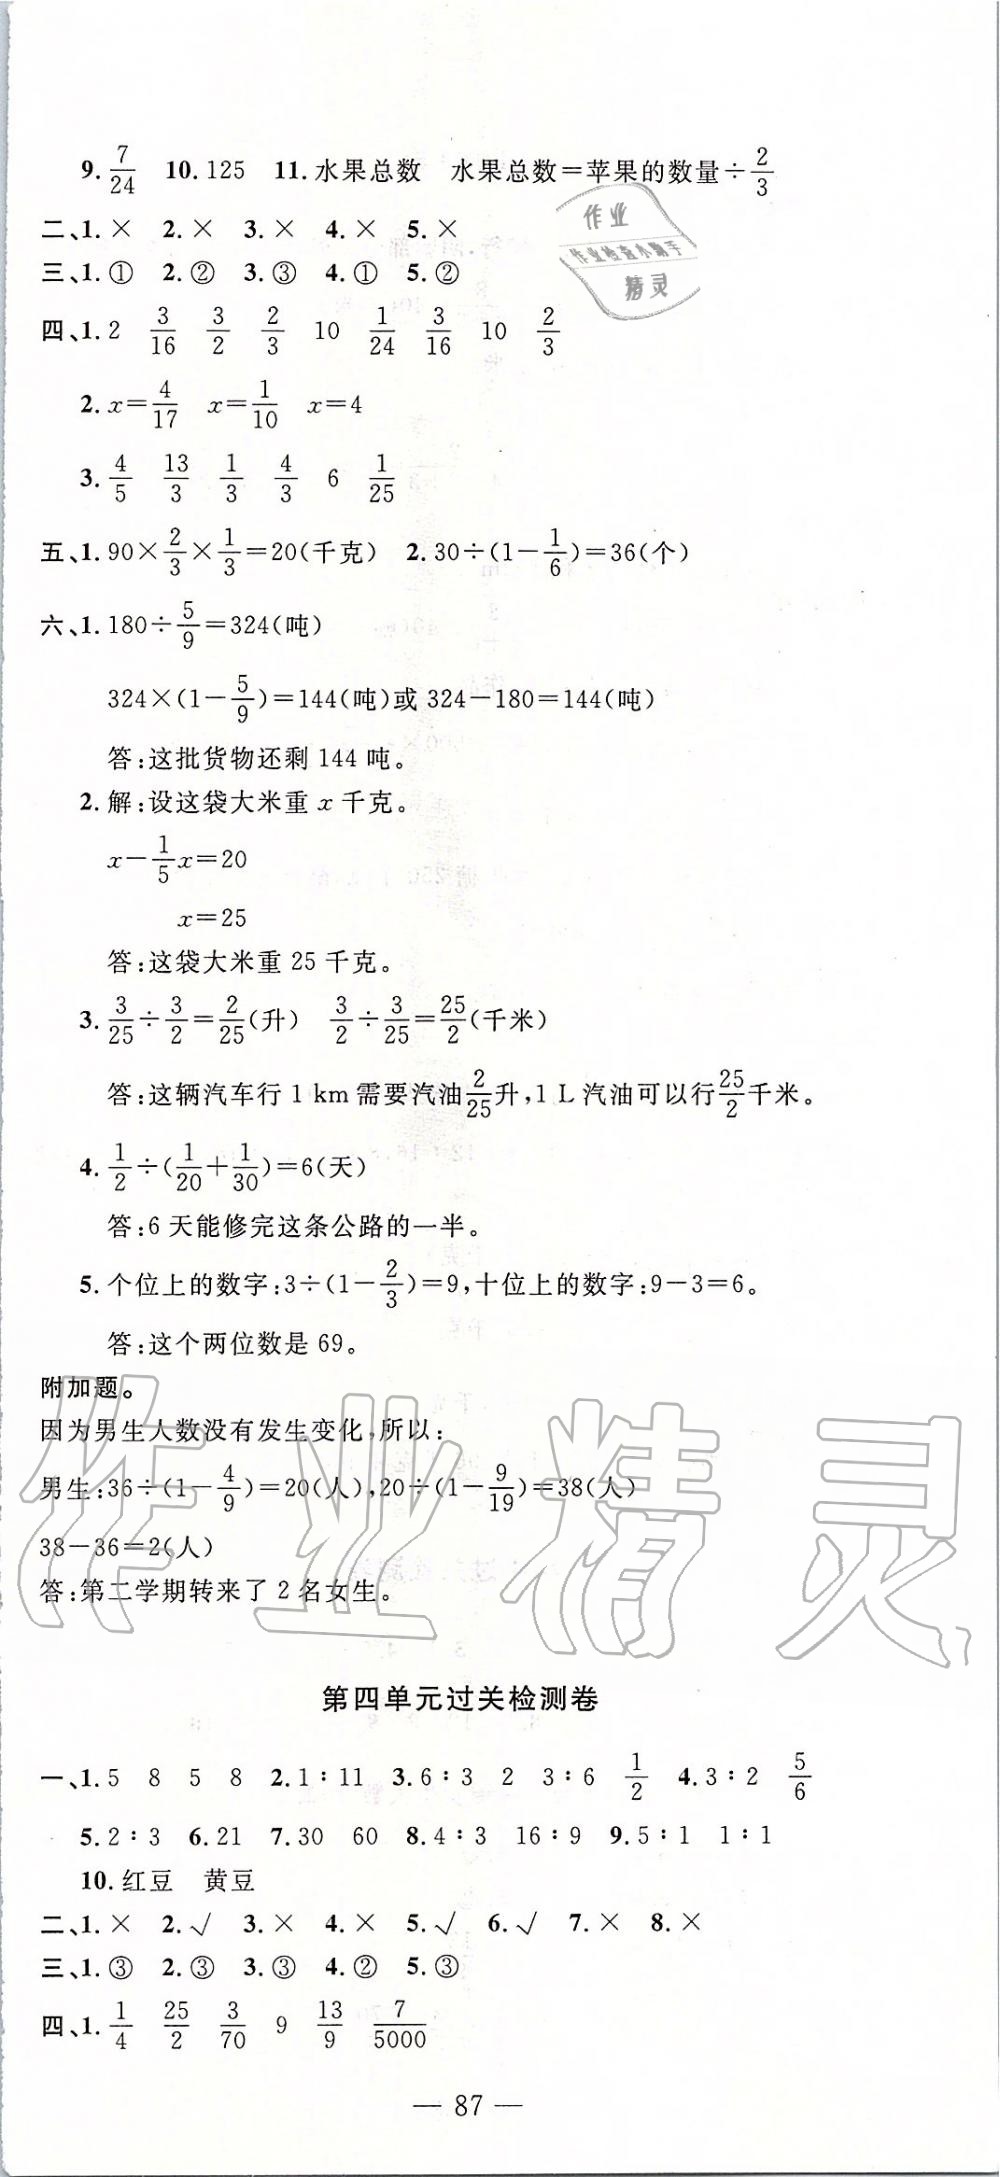 9. 7/24 10. 125 11. 水果总数 水果总数＝苹果的数量÷2/3
作业
作业检查小助手
精灵
二、1. × 2. × 3. × 4. × 5. ×
三、1. ① 2. ② 3. ③ 4. ① 5. ②
四、1. 2 3/16 3/2 2/3 10 1/24 3/16 10 2/3
2. x＝4/17 x＝1/10 x＝4
3. 4/5 13/3 1/3 4/3 6 1/25
五、1. 90×2/3×1/3＝20(千克) 2. 30÷(1－1/6)＝36(个)
六、1. 180÷5/9＝324(吨)
324×(1－5/9)＝144(吨)或 324－180＝144(吨)
答:这批货物还剩 144 吨。
2. 解:设这袋大米重 x 千克。
x－1/5x＝20
x＝25
答:这袋大米重 25 千克。
3. 3/25÷3/2＝2/25(升) 3/2÷3/25＝25/2(千米)
答:这辆汽车行 1 km 需要汽油2/25升,1 L 汽油可以行25/2千米。
4. 1/2÷(1/20＋1/30)＝6(天)
答:6 天能修完这条公路的一半。
5. 个位上的数字:3÷(1－2/3)＝9,十位上的数字:9－3＝6。
答:这个两位数是 69。
附加题。
因为男生人数没有发生变化,所以:
男生:36÷(1－4/9)＝20(人),20÷(1－9/19)＝38(人)
38－36＝2(人)
答:第二学期转来了 2 名女生。
作业精灵
第四单元过关检测卷
一、1. 5 8 5 8 2. 1∶11 3. 6∶3 2 3∶6 1/2 4. 3∶2 5/6
5. 2∶3 6. 21 7. 30 60 8. 4∶3 16∶9 9. 5∶1 1∶1
10. 红豆 黄豆
二、1. × 2. √ 3. × 4. × 5. √ 6. √ 7. × 8. ×
三、1. ③ 2. ③ 3. ③ 4. ② 5. ③
四、1. 1/4 25/2 3/70 9 13/9 7/5000
— 87 —